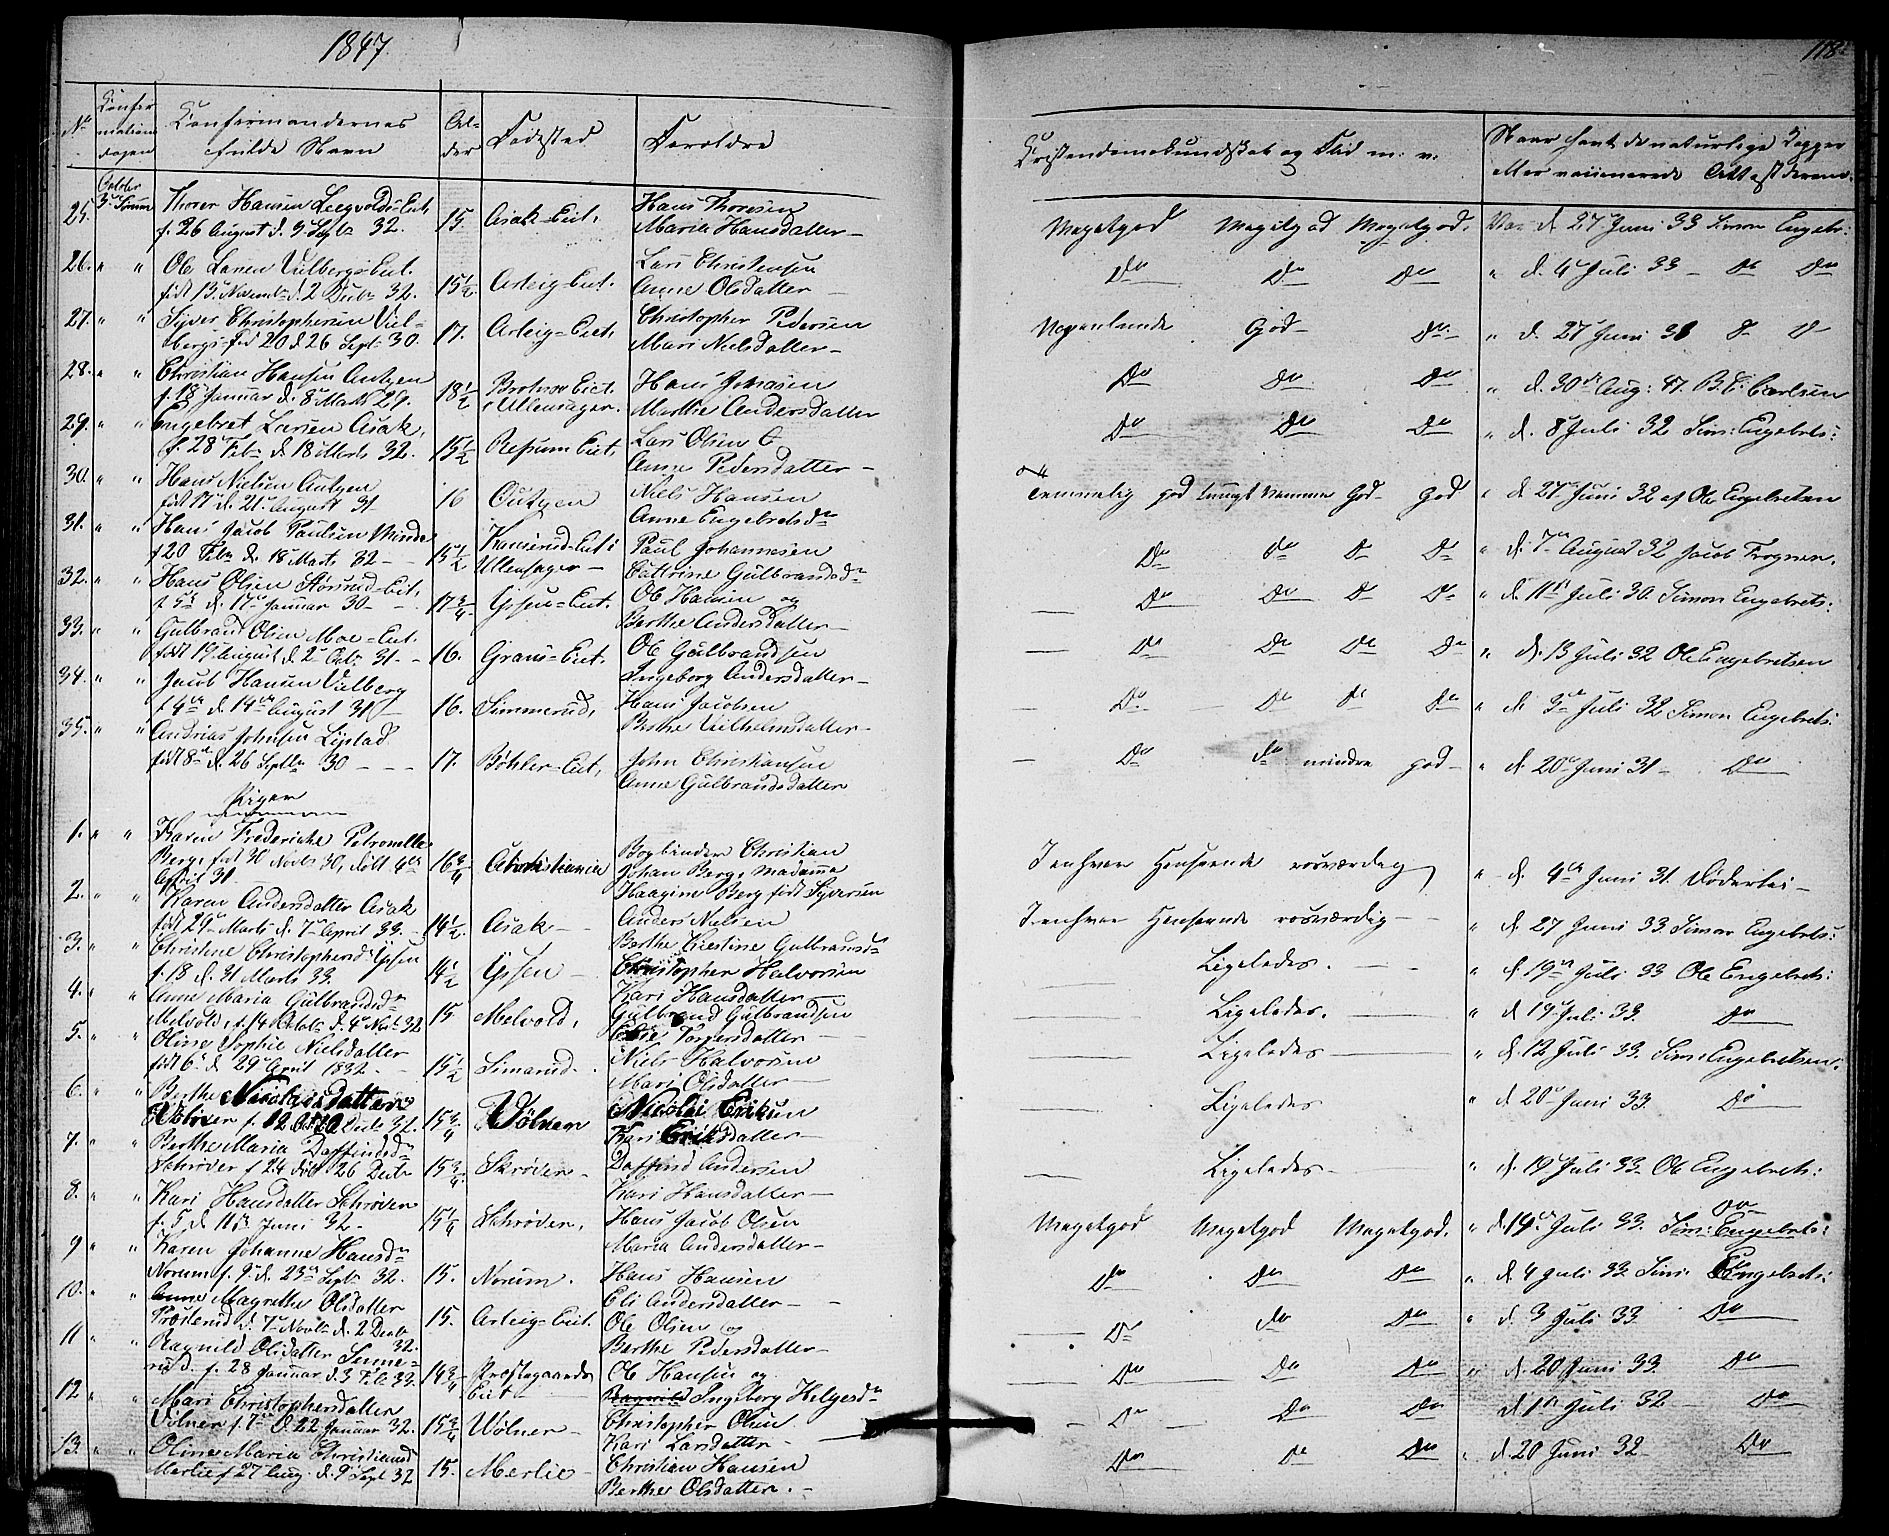 1847.
118
No
Konfirmationsdagen
Konfirmandernes fulde Navn
Alder
Fødested
Foreldre
Kristendomskundskab og Flid m: v:
Naar havt de naturlige Kopper eller vaccinerede Attesterne
October 3die Sørum
25. Thorer Hansen Eiet, f. 26 August d. 9 Septb 32. 15. Asak-Eiet, Hans Thoresen Maria Hansdatter Megetgod Megetgod Megetgod. Vac d. 27 Juni 33 Simon Engebr:
26. " " Ole Larsen Vilbergs Eiet. født 13 Novemb d. 2 Decbr 32. 15½ Arteig Eiet. Lars Christensen Anne Olsdatter Do Do Do " d. 4 Juli 33 Do Do
27. " " Syver Christophersen Vilbergs fød 20 d. 26 Sept 30. 17. Arteig-Eiet, Christopher Pedersen Mari Nielsdatter Nogenlunde God Do " d. 27 Juni 31
28. " " Christian Hansen Autgen f. 18 Januar d. 8 Marts 29. 18½ Eiet i Ullensager. Hans Marthe Andersdatter Do Do Do " d. 30 Aug: 47. B. C: Carlsen
29. " " Engebret Larsen Asak, f. 28 Feb d. 18 Marts 32. 15½ Refsum Eiet, Lars Olsen Anne Pedersdatter Do Do Do " d. 8 Juli 32 Sim: Engebrets:
30. " " Hans Nielsen Autgen født 17 d. 21 August 31 16 Outgen Niels Hansen Anne Engebretsdr Temmelig god svagt Nemme God God " d. 27 Juni 32 af Ole Engebretsen
31. " " Hans Jacob Paulsen Minde f 20 Feb d. 18 Marts 32 15½ Eiet i Ullensager Paul Johannesen Cattrine Gulbrandsdr Do do Do Do " d. 7 August 32 Jacob Frogner.
32. " " Hans Olsen Eiet, f 5 d. 17 Januar 30 17¾ Ipsen-Eiet. Ole Hansen og Berthe Andersdatter Do Do Do Do " d. 11 Juli 30. Simon Engebrets:
33. " " Gulbrand Olsen Moe-Eiet. født 19 August d. 2 Oct 31 16. Graus-Eiet. Ole Gulbrandsen Ingeborg Andersdatter Do Do Do Do " d. 13 Juli 32 Ole Engebretsen
34. " " Jacob Hansen Vilberg f 4de d. 14de August 31 16. Simmerud, Hans Jacobsen Berthe Vilhelmsdatter Do Do Do Do " d. 3die Juli 32 Simon Engebrets:
35. " " Andrias Johnsen Lystad født 8de d. 26 Septbr 30 17. Bøhler-Eiet, John Christiansen Anne Gulbrandsdatter Do do mindre god " d. 20 Juni 31 Do
Piger
1. " " Karen Frederiche Petronelle Berg, fød 30 Novb 30, døbt 4de April 31 16¾ Christiania Bogbinder Christian Johan Berg, Madamme Berg født Syversen I enhver Henseende rosværdig " d. 4de Juni 31.
2. " Karen Andersdatter Asak født 29 Marts d. 7 April 33. 14½. Asak Anders Nielsen Berthe Kirstine Gulbrandsd I enhver Henseende rosværdig " d. 27 Juni 33 Simon Engebrets:
3. " " Christine Christophersd Ipsen f. 18 d. 31 Marts 33. 14½ Ipsen Christopher Halvorsen Kari Hansdatter Ligeledes. " d. 19 Juli 33 Ole Engebrets:
4. " " Anne Maria Gulbrandsdr Melvold, f. 14 Octob d. 4 Novb 32 15 Melvold, Gulbrand Gulbrandsen Torgersdatter Ligeledes. " d. 19 Juli 33. Do
5. " " Oline Sophie Nielsdatter født 6 d. 29 April 1832 15½ Simarud Niels Halvorsen Mari Olsdatter Ligeledes " d. 12 Juli 33. Sim: Engebretsen.
6. " " Berthe Nicolaisdatter Vølner f. 12 Decb 31. 15¾ Vølner Nicolai Eriksen Kari Eriksdatter Ligeledes " d. 20 Juni 33. Do
7. " " Berthe Maria Daffinsd Schrøver f 24 døbt 26 Decb 15¾ Skrøver Daffind Andersen Kari Hansdatter Ligeledes " d. 19 Juli 33. Ole Engebrets:
8. " " Kari Hansdatter Schrøver f. 5 d. 11 Juni 32 15¼ Schrøver, Hans Jacob Olsen Maria Andersdatter Megetgod Megetgod Megetgod. " d. 19 Juli 33. Sim: Engebrets:
9 " " Karen Johanne Hansdr Norum f. 9 d. 23 Sept 32. 15. Norum. Hans Hansen Eli Andersdatter Do Do Do " d. 4 Juli 33 Sim: Engebrets:
10. " " Anne Magrethe Olsdatter f. 7 Novb d. 2 Decb 32. 15. Arteig-Eiet. Ole Olsen og Berthe Pedersdatter Do do Do " d. 3 Juli 33 Do
11 " " Ragnild Olsdatter Simmerud. f. 28 Januar d. 3 Feb 33. 14¾ Præstegaards Eiet Ole Hansen og Ingeborg Helgesdr Do Do Do " d. 20 Juni 33. Do
12. " " Mari Christophersdatter Vølner f. 7 d. 22 Januar 32. 15¾ Vølner Christopher Olsen Kari Larsdatter Do Do Do d. 1 Juli 32 Do
13. " " Oline Maria Christiansd Merlie f 27 Aug. d. 9 Sept 32 15. Merlie Christian Hansen Berthe Olsdatter. Do Do Do " d. 20 Juni 32 Do